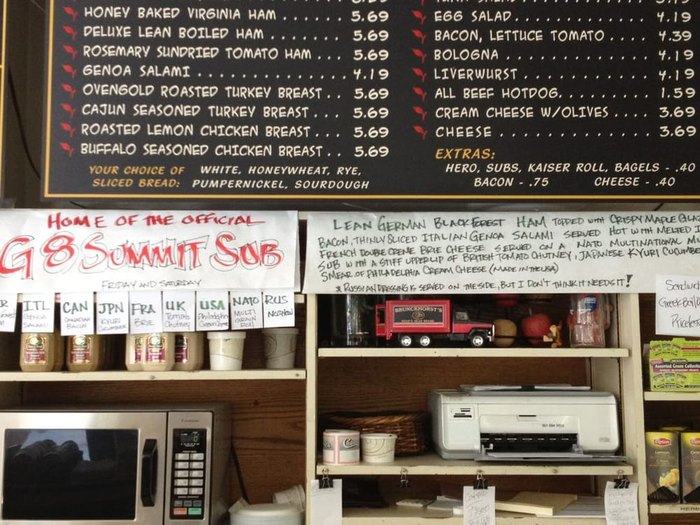 HONEY BAKED VIRGINIA HAM ..... 5.69
DELUXE LEAN BOILED HAM ..... 5.69
ROSEMARY SUNDRIED TOMATO HAM ... 5.69
GENOA SALAMI ............ 4.19
OVENGOLD ROASTED TURKEY BREAST .. 5.69
CAJUN SEASONED TURKEY BREAST ... 5.69
ROASTED LEMON CHICKEN BREAST ... 5.69
BUFFALO SEASONED CHICKEN BREAST .. 5.69
YOUR CHOICE OF SLICED BREAD: WHITE, HONEYWHEAT, RYE,
PUMPERNICKEL, SOURDOUGH
4.19
EGG SALAD ............ 4.19
BACON, LETTUCE TOMATO .... 4.39
BOLOGNA ............ 4.19
LIVERWURST ............ 4.19
ALL BEEF HOTDOG ......... 1.59
CREAM CHEESE W/OLIVES .... 3.69
CHEESE ............ 3.69
EXTRAS:
HERO, SUBS, KAISER ROLL, BAGELS - .40
BACON - .75 CHEESE - .40
HOME OF THE OFFICIAL
G8 SUMMIT SUB
FRIDAY AND SATURDAY
LEAN GERMAN BLACK FOREST HAM TOPPED WITH CRISPY MAPLE
BACON, THINLY SLICED ITALIAN GENOA SALAMI SERVED HOT WITH MELTED
FRENCH DOUBLE CREME BRIE CHEESE SERVED ON A NATO MULTINATIONAL
SUB WITH A STIFF UPPERLIP OF BRITISH TOMATO CHUTNEY, JAPANESE KYURI
SMEAR OF PHILADELPHIA CREAM CHEESE (MADE IN THE USA)
* RUSSIAN DRESSING IS SERVED ON THE SIDE, BUT I DON'T THINK IT NEEDS IT!
ITL
GENOA
SALAMI
CAN
CANADIAN
BACON
JPN
KYURI
FRA
BRIE
UK
TOMATO
CHUTNEY
USA
PHILADELPHIA
CREAM CHEESE
NATO
MULTI
GRAIN
RUS
BRUNCKHORST'S
Lipton